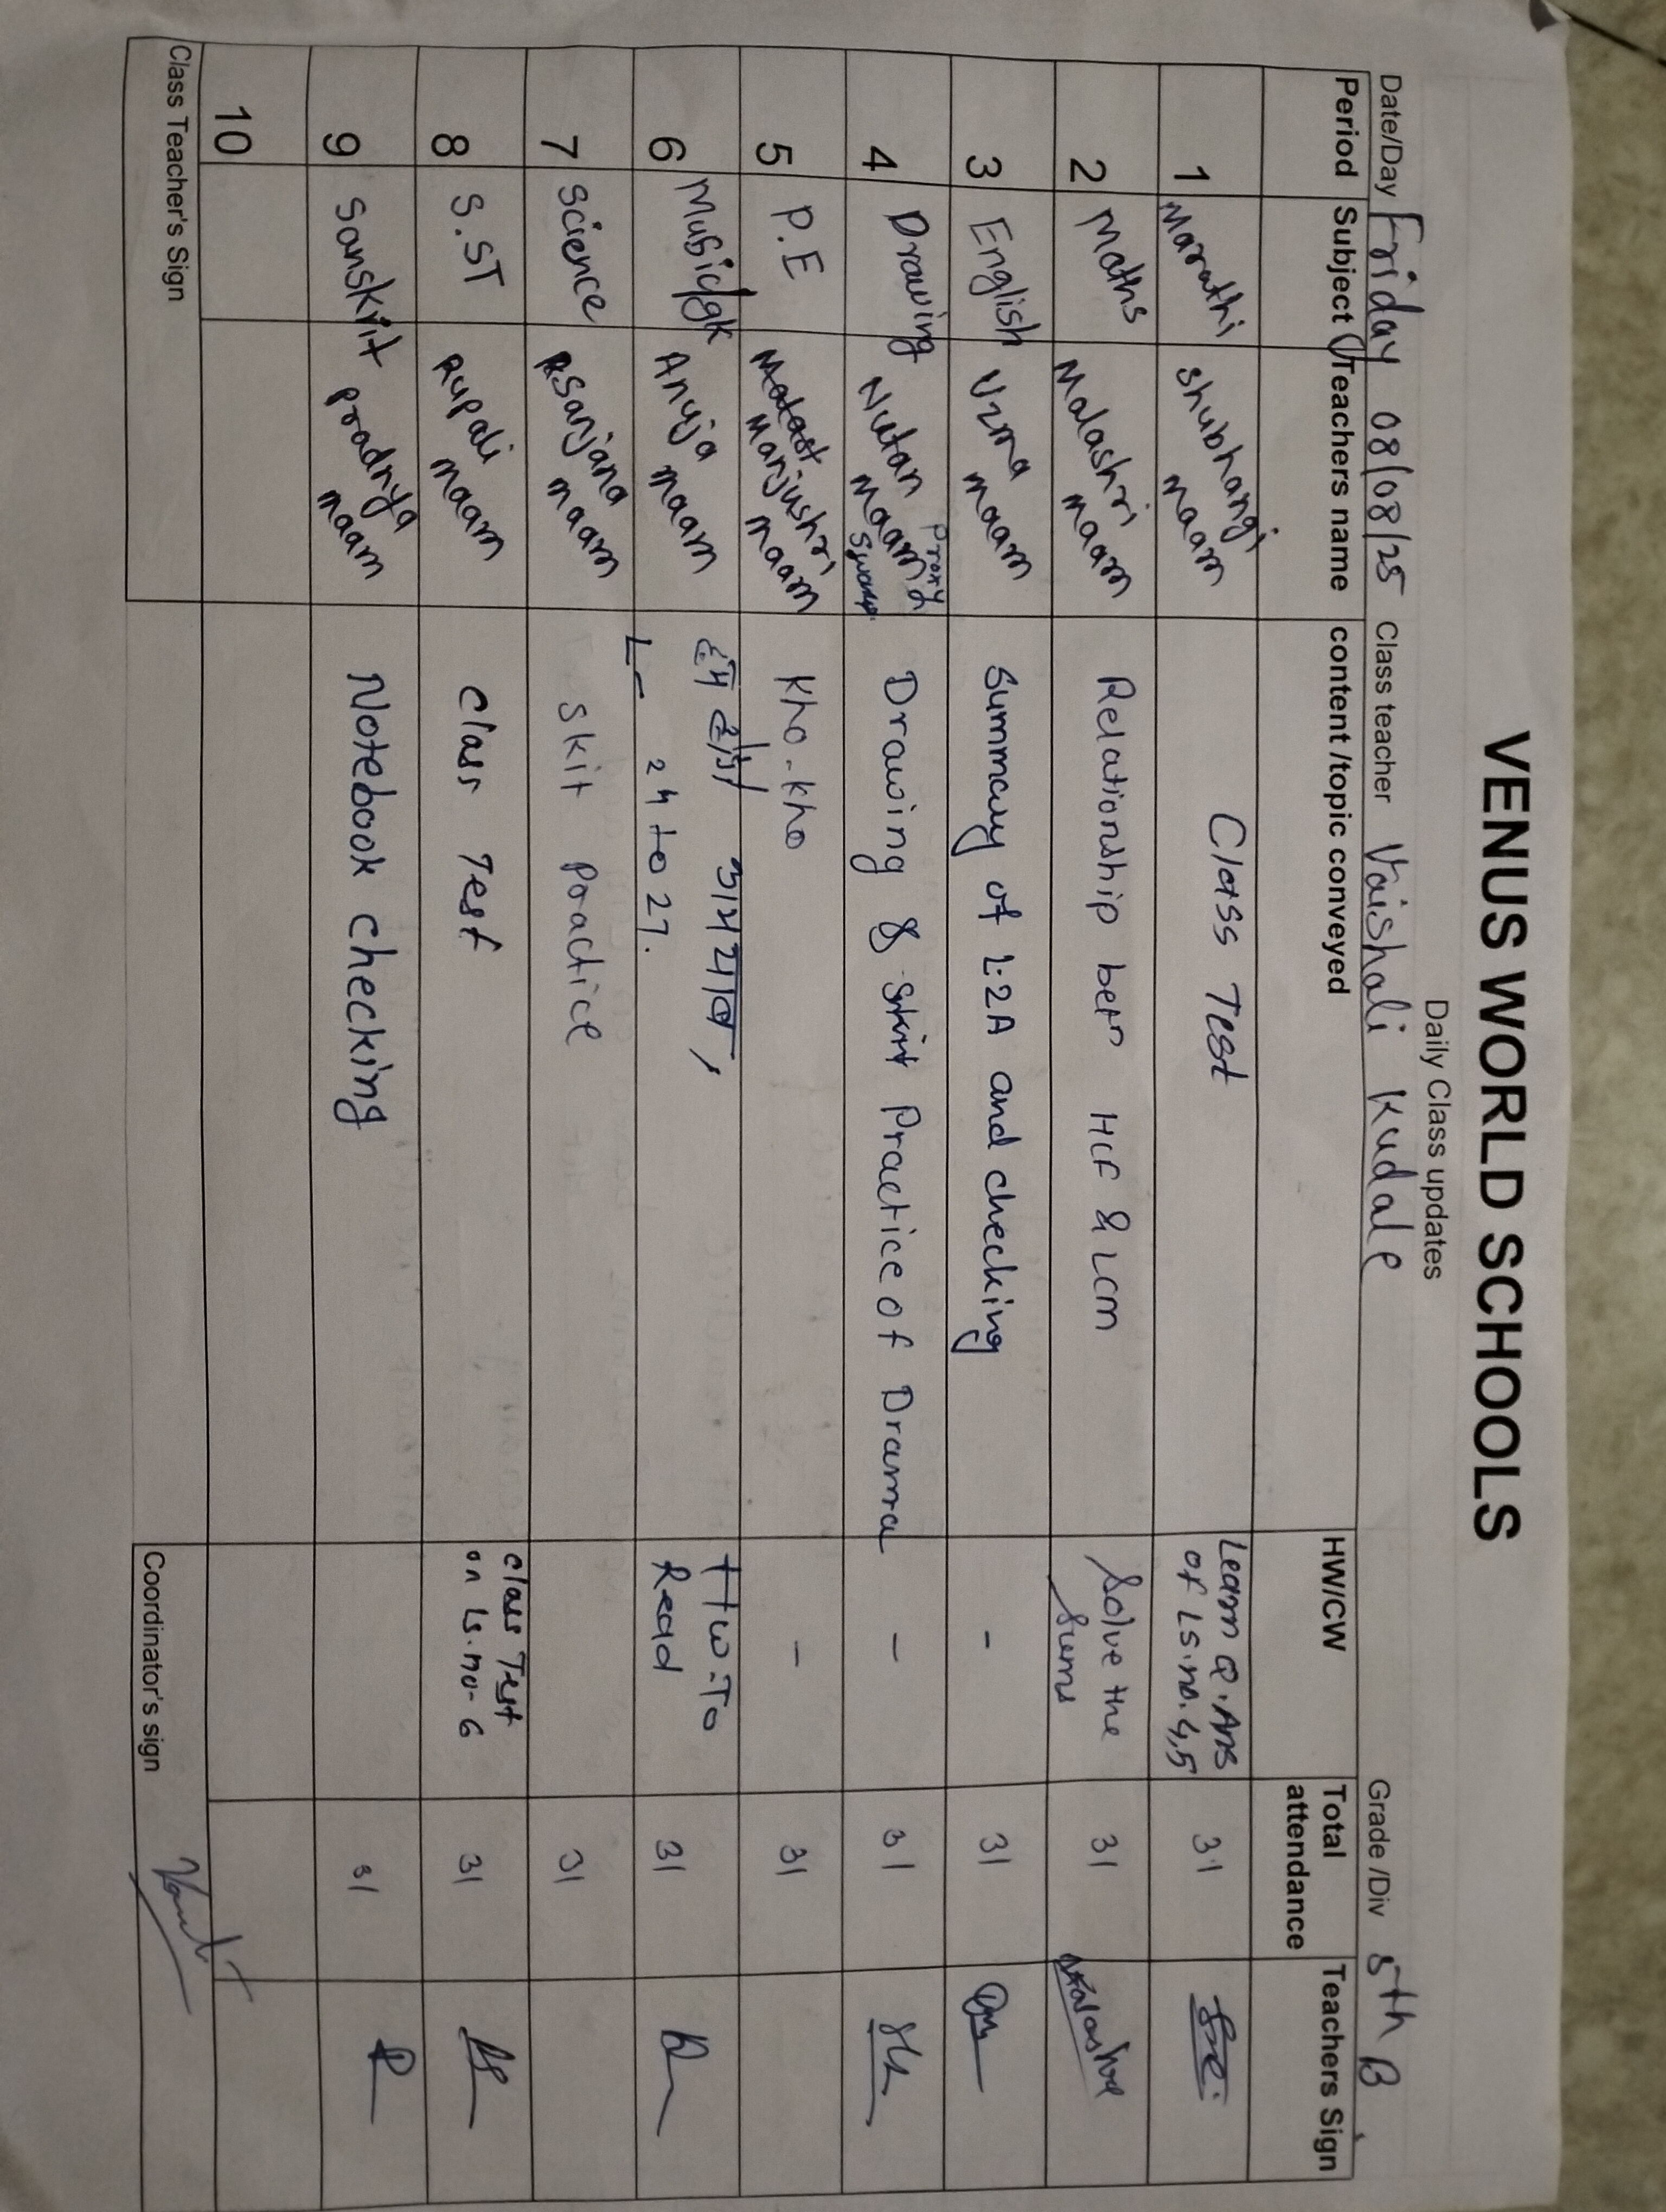 VENUS WORLD SCHOOLS
Daily Class updates
Date/Day Friday 08/08/25 Class teacher Vaishali Kudale Grade /Div 5th B
Period Subject Teachers name content /topic conveyed HW/CW Total attendance Teachers Sign
1 Marathi Shubhangi maam Class Test Learn Q.Ans of Ls.no.4,5 31
2 Maths Malashri maam Relationship betn HCF & LCM Solve the Sums 31
3 English Uzma maam Summary of L:2A and checking - 31
4 Drawing Nutan Maam Proxy Swarup Drawing & skit Practice of Drama - 31
5 P.E Manjushri maam Kho-Kho - 31
6 Music/gk Anuja maam
L- 24 to 27. HW-To Read 31
7 Science Sanjana maam Skit Practice 31
8 S.ST Rupali maam Class Test Class Test on Ls.no-6 31
9 Sanskrit pradnya maam Notebook checking 31
10
Class Teacher's Sign Coordinator's sign